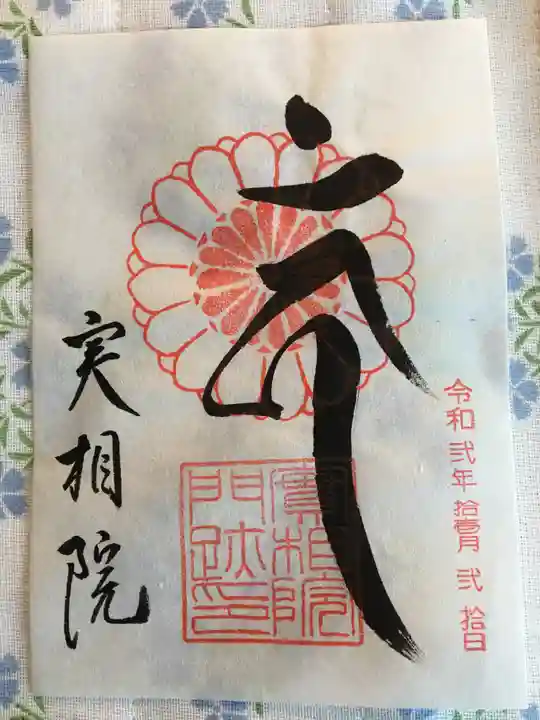 令和弐年拾壹月弐拾日
實相院
門跡印
実相院